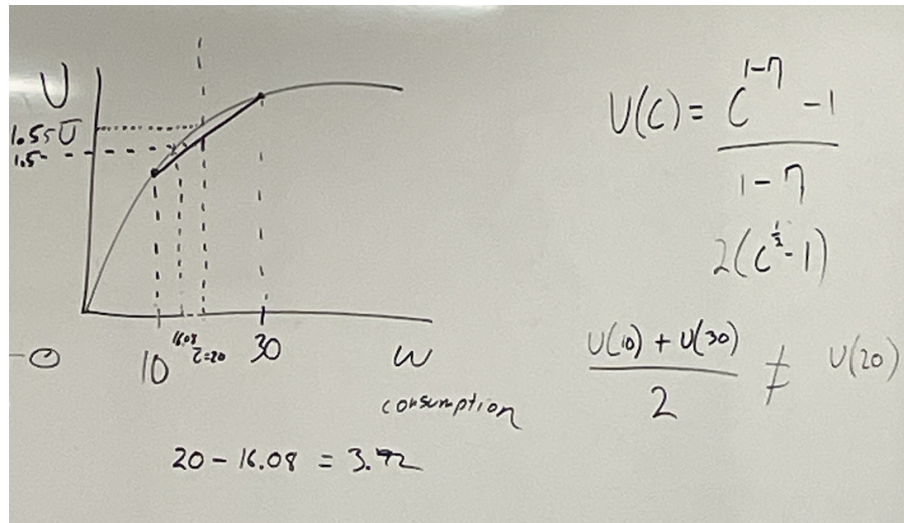 U
1.55 Ū
1.5
-0
10
16.08
c̄=20
30
W
consumption
20 - 16.08 = 3.92
U(C) = (C^{1-η} - 1) / (1-η)
2(C^{1/2} - 1)
(U(10) + U(30)) / 2 ≠ U(20)